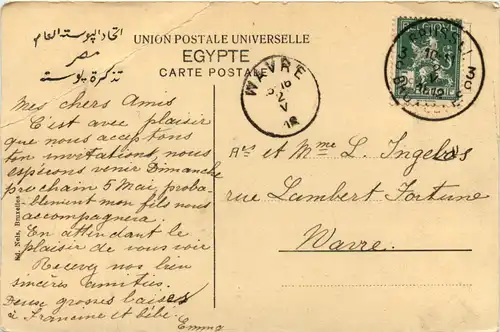 اتحاد البوسته العام
مصر
تذكرة بوسته
UNION POSTALE UNIVERSELLE
EGYPTE
CARTE POSTALE
WAVRE
V
12
3
Mes chers Amis
C'est avec plaisir
que nous acceptons
ton invitations, nous
espérons venir Dimanche
prochain 5 Mai, proba-
blement mon fils nous
accompagnera.
En attendant le
plaisir de vous voir
Recevez nos bien
sincères amitiés.
Deux grosses baises
à Francine et bébé.
Emma
Mr et Mme L. Ingelbos
rue Lambert Fortune
Wavre.
Ed. Nels, Bruxelles